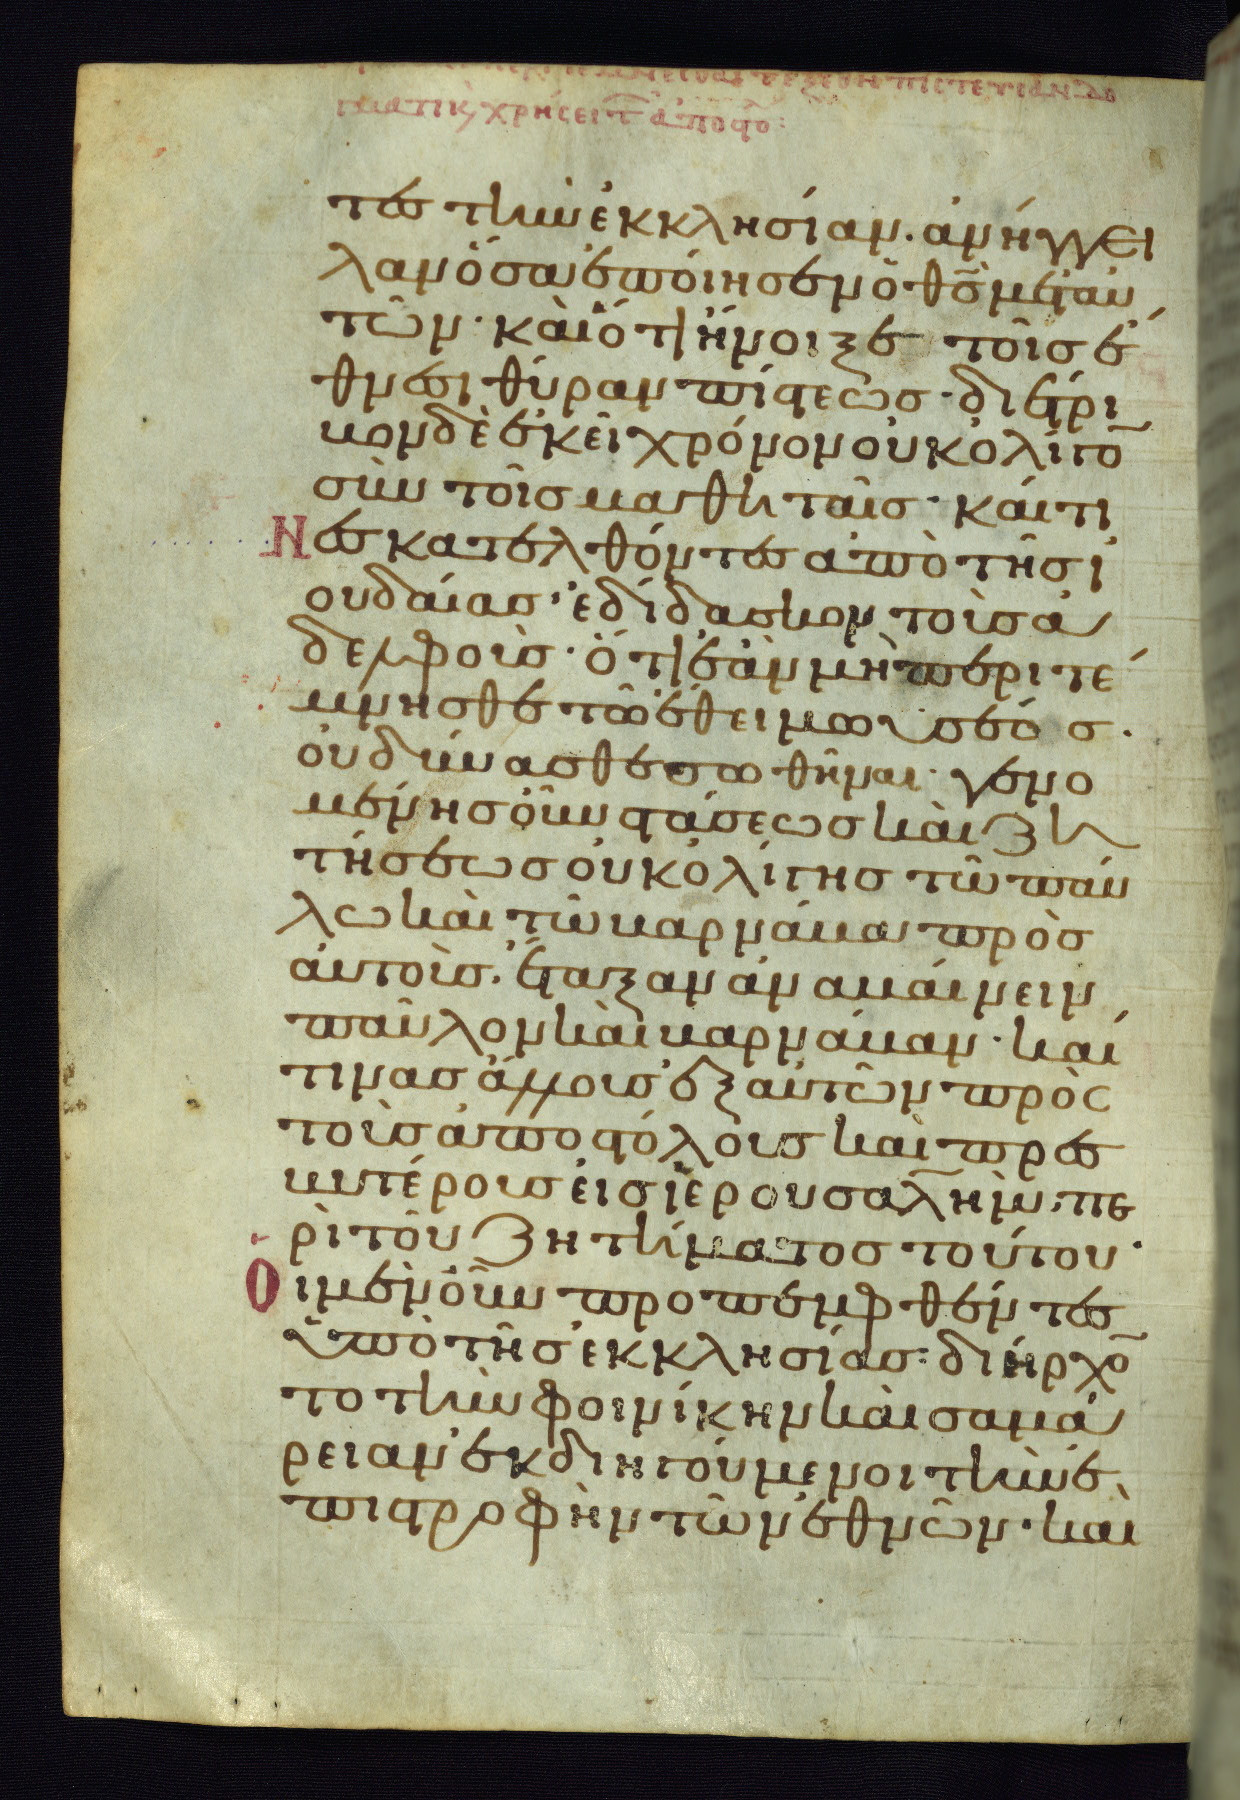 ματικ χρήσει τ ἀποστο:
τες τὴν ἐκκλησίαν. ἀνήγγει
λαν ὅσα ἐποίησεν ὁ θς μετ αὐ
τῶν· καὶ ὅτι ἤνοιξε τοῖς ἔ
θνεσι θύραν πίστεως· διέτρι
βον δὲ ἐκεῖ χρόνον οὐκ ὀλίγο
σὺν τοῖς μαθηταῖς· καί τι
Νες κατελθόντες ἀπὸ τῆς ἰ
ουδαίας· ἐδίδασκον τοὺς ἀ
δελφούς· ὅτι ἐὰν μὴ περιτέ
μνησθε τῶ ἔθει μωϋσέως.
οὐ δύνασθε σωθῆναι· γενο
μένης οὖν στάσεως καὶ ζη
τήσεως οὐκ ὀλίγης τῶ παύ
λω καὶ τῶ βαρνάβα πρὸς
αὐτούς. ἔταξαν ἀναβαίνειν
παῦλον καὶ βαρνάβαν· καί
τινας ἄλλους ἐξ αὐτῶν πρὸς
τοὺς ἀποστόλους καὶ πρεσ
βυτέρους εἰς ἱερουσαλὴμ· πε
ρὶ τοῦ ζητήματος τούτου·
Οἱ μὲν οὖν προπεμφθέντες
ὑπὸ τῆς ἐκκλησίας· διήρχο
το τὴν φοινίκην καὶ σαμά
ρειαν ἐκδιηγούμενοι τὴν ἐ
πιστροφὴν τῶν ἐθνῶν· καὶ